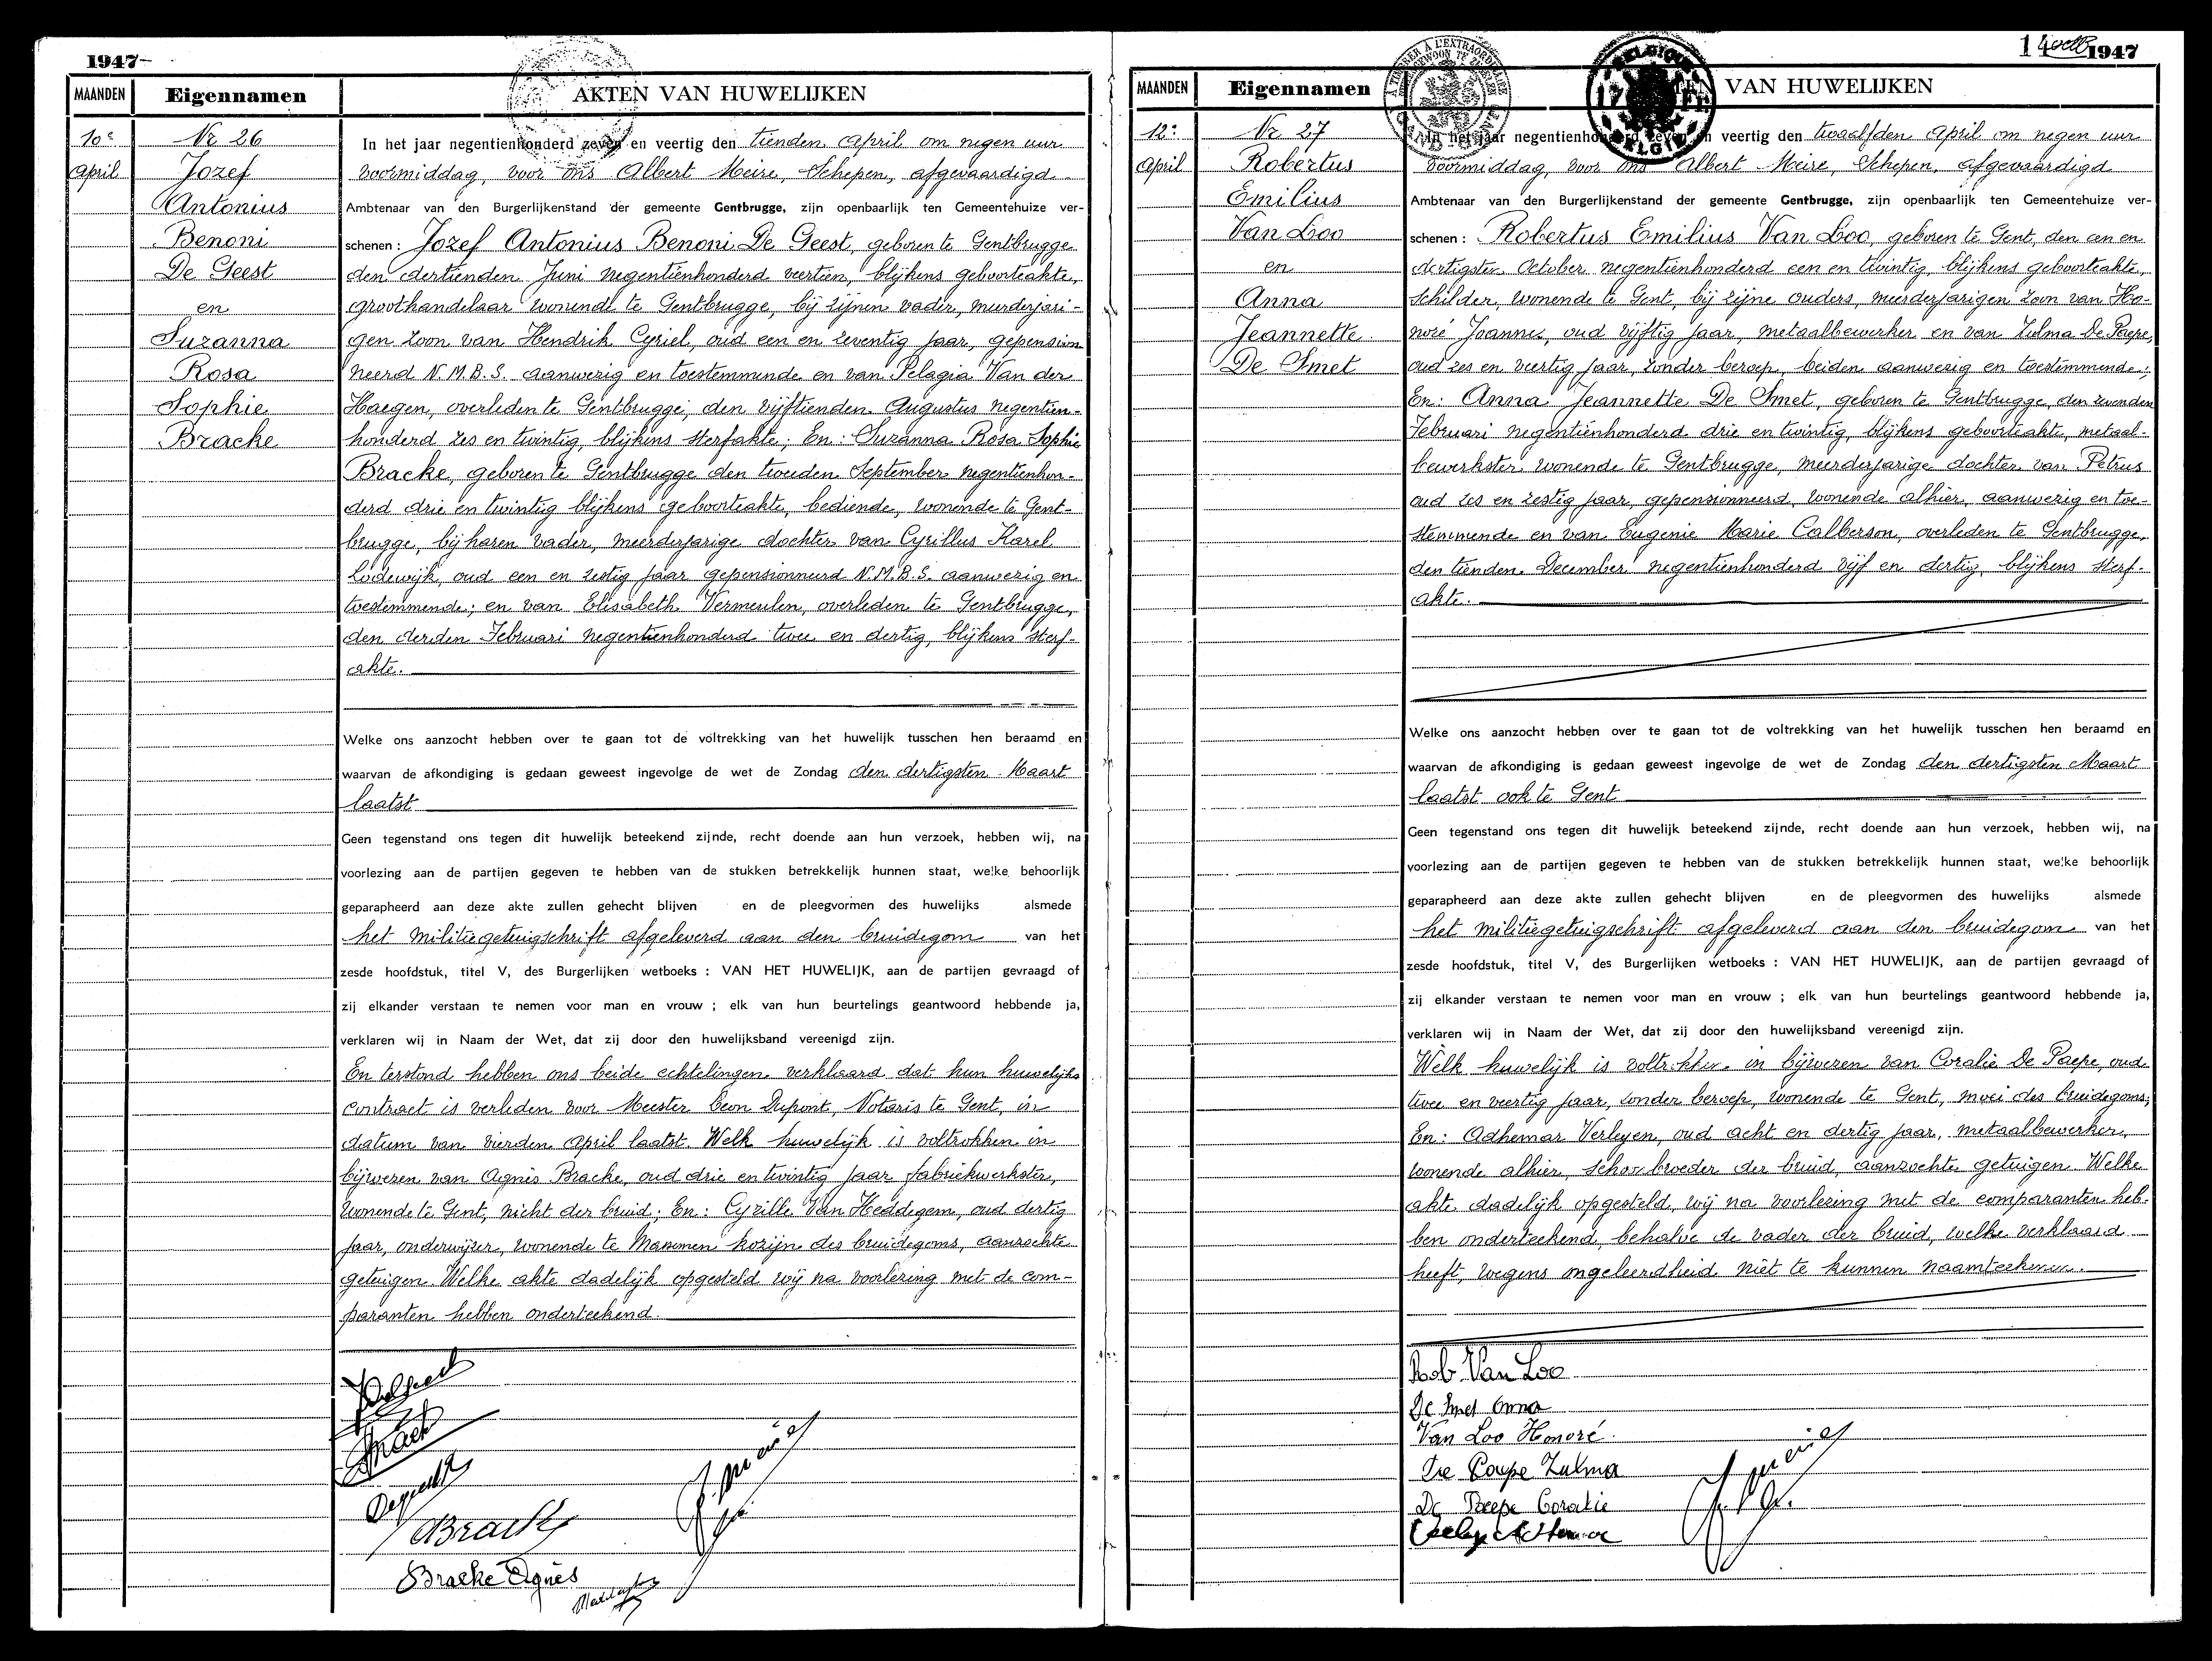 1947
MAANDEN
Eigennamen
AKTEN VAN HUWELIJKEN
10e
April
Nr 26
Jozef
Antonius
Benoni
De Geest
en
Suzanna
Rosa
Sophie
Bracke
In het jaar negentienhonderd zeven en veertig den tienden April om negen uur
voormiddag, voor ons Albert Meire, Schepen, afgevaardigd
Ambtenaar van den Burgerlijkenstand der gemeente Gentbrugge, zijn openbaarlijk ten Gemeentehuize ver-
schenen : Jozef Antonius Benoni De Geest, geboren te Gentbrugge
den dertienden Juni negentienhonderd veertien, blijkens geboorteakte,
groothandelaar wonende te Gentbrugge, bij zijnen vader, meerderjari-
gen zoon van Hendrik Cyriel, oud een en zeventig jaar, gepension
neerd N.M.B.S. aanwezig en toestemmende en van Pelagia Van der
Haegen, overleden te Gentbrugge, den vijftienden Augustus negentien-
honderd zes en twintig, blijkens sterfakte; En: Suzanna Rosa Sophie
Bracke, geboren te Gentbrugge den tweeden September negentienhon-
derd drie en twintig blijkens geboorteakte, bediende, wonende te Gent-
brugge, bij haren vader, meerderjarige dochter van Cyrillus Karel
Lodewijk, oud een en zestig jaar gepensionneerd N.M.B.S. aanwezig en
toestemmende; en van Elisabeth Vermeulen, overleden te Gentbrugge,
den derden Februari negentienhonderd twee en dertig, blijkens sterf-
akte.
Welke ons aanzocht hebben over te gaan tot de voltrekking van het huwelijk tusschen hen beraamd en
waarvan de afkondiging is gedaan geweest ingevolge de wet de Zondag den dertigsten Maart
laatst
Geen tegenstand ons tegen dit huwelijk beteekend zijnde, recht doende aan hun verzoek, hebben wij, na
voorlezing aan de partijen gegeven te hebben van de stukken betrekkelijk hunnen staat, welke behoorlijk
geparapheerd aan deze akte zullen gehecht blijven en de pleegvormen des huwelijks alsmede
het militiegetuigschrift afgeleverd aan den bruidegom van het
zesde hoofdstuk, titel V, des Burgerlijken wetboeks : VAN HET HUWELIJK, aan de partijen gevraagd of
zij elkander verstaan te nemen voor man en vrouw ; elk van hun beurtelings geantwoord hebbende ja,
verklaren wij in Naam der Wet, dat zij door den huwelijksband vereenigd zijn.
En terstond hebben ons beide echtelingen verklaard dat hun huwelijks
contract is verleden voor Meester Leon Dupont, Notaris te Gent, in
datum van vierden April laatst. Welk huwelijk is voltrokken in
bijwezen van Agnès Bracke, oud drie en twintig jaar fabriekwerkster,
wonende te Gent, nicht der bruid; En: Cyrille Van Heddegem, oud dertig
jaar, onderwijzer, wonende te kozijn des bruidegoms, aanzochte
getuigen. Welke akte dadelijk opgesteld wij na voorlezing met de com-
paranten hebben onderteekend.
Bracke
Bracke Agnès
14 1947
MAANDEN
Eigennamen
AKTEN VAN HUWELIJKEN
12e
April
Nr 27
Robertus
Emilius
Van Loo
en
Anna
Jeannette
De Smet
In het jaar negentienhonderd zeven en veertig den twaalfden April om negen uur
voormiddag, voor ons Albert Meire, Schepen, afgevaardigd
Ambtenaar van den Burgerlijkenstand der gemeente Gentbrugge, zijn openbaarlijk ten Gemeentehuize ver-
schenen : Robertus Emilius Van Loo, geboren te Gent, den een en
dertigsten October negentienhonderd een en twintig, blijkens geboorteakte,
schilder, wonende te Gent, bij zijne ouders, meerderjarigen zoon van Ho-
noré Joannes, oud vijftig jaar, metaalbewerker en van Zulma De Paepe,
oud zes en veertig jaar, zonder beroep, beiden aanwezig en toestemmende;
En: Anna Jeannette De Smet, geboren te Gentbrugge, den zevenden
Februari negentienhonderd drie en twintig, blijkens geboorteakte, metaal-
bewerkster wonende te Gentbrugge, meerderjarige dochter van Petrus
oud zes en zestig jaar, gepensionneerd, wonende alhier, aanwezig en toe-
stemmende en van Eugenie Marie Calberson, overleden te Gentbrugge,
den tienden December negentienhonderd vijf en dertig, blijkens sterf-
akte.
Welke ons aanzocht hebben over te gaan tot de voltrekking van het huwelijk tusschen hen beraamd en
waarvan de afkondiging is gedaan geweest ingevolge de wet de Zondag den dertigsten Maart
laatst ook te Gent
Geen tegenstand ons tegen dit huwelijk beteekend zijnde, recht doende aan hun verzoek, hebben wij, na
voorlezing aan de partijen gegeven te hebben van de stukken betrekkelijk hunnen staat, welke behoorlijk
geparapheerd aan deze akte zullen gehecht blijven en de pleegvormen des huwelijks alsmede
het militiegetuigschrift afgeleverd aan den bruidegom van het
zesde hoofdstuk, titel V, des Burgerlijken wetboeks : VAN HET HUWELIJK, aan de partijen gevraagd of
zij elkander verstaan te nemen voor man en vrouw ; elk van hun beurtelings geantwoord hebbende ja,
verklaren wij in Naam der Wet, dat zij door den huwelijksband vereenigd zijn.
Welk huwelijk is voltrokken in bijwezen van Coralie De Paepe, oud
twee en veertig jaar, zonder beroep, wonende te Gent, moei des bruidegoms;
En: Adhemar Verleyen, oud acht en dertig jaar, metaalbewerker,
wonende alhier, schoonbroeder der bruid, aanzochte getuigen. Welke
akte dadelijk opgesteld, wij na voorlezing met de comparanten heb-
ben onderteekend, behalve de vader der bruid, welke verklaard
heeft, wegens ongeleerdheid niet te kunnen naamteekenen.
Rob Van Loo
De Smet Anna
Van Loo Honoré
De Paepe Zulma
De Paepe Coralie